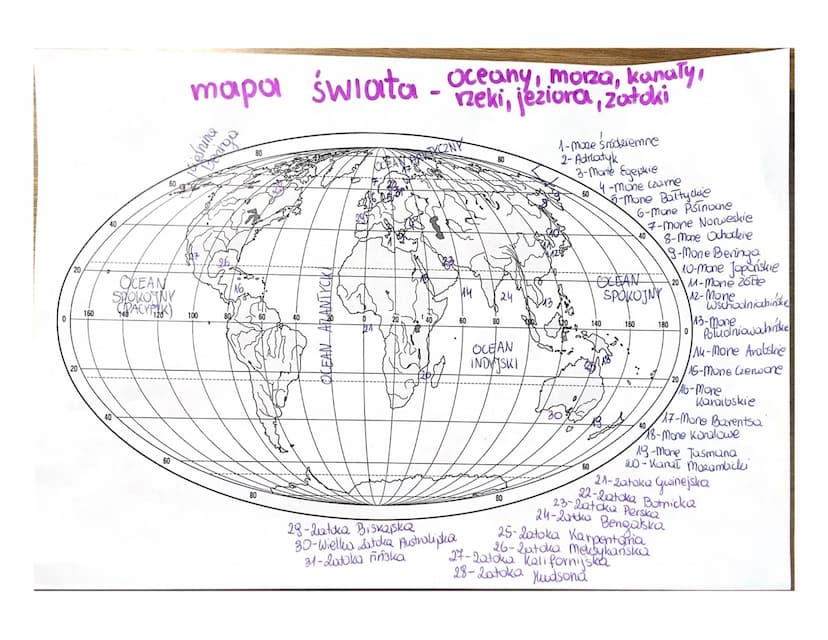 mapa świata - oceany, morza, kanały,
rzeki, jeziora, zatoki
Cieśnina
Beringa
OCEAN ARKTYCZNY
OCEAN
SPOKOJNY
(PACYFIK)
OCEAN ATLANTYCKI
OCEAN
INDYJSKI
OCEAN
SPOKOJNY
1-Morze Śródziemne
2-Adriatyk
3-Morze Egejskie
4-Morze Czarne
5-Morze Bałtyckie
6-Morze Północne
7-Morze Norweskie
8-Morze Ochockie
9-Morze Beringa
10-Morze Japońskie
11-Morze Żółte
12-Morze
Wschodniochińskie
13-Morze
Południowochińskie
14-Morze Arabskie
15-Morze Czerwone
16-Morze
Karaibskie
17-Morze Barentsa
18-Morze Koralowe
19-Morze Tasmana
20-Kanał Mozambicki
21-Zatoka Gwinejska
22-Zatoka Botnicka
23-Zatoka Perska
24-Zatoka Bengalska
25-Zatoka Karpentaria
26-Zatoka Meksykańska
27-Zatoka Kalifornijska
28-Zatoka Hudsona
29-Zatoka Biskajska
30-Wielka Zatoka Australijska
31-Zatoka Fińska